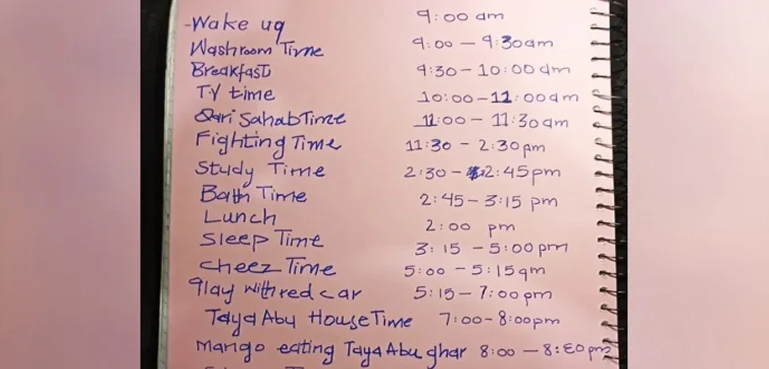 -Wake up 9:00 am
Washroom Time 9:00 - 9:30am
Breakfast 9:30 - 10:00 am
TV time 10:00-11:00am
Qari Sahab Time 11:00 - 11:30am
Fighting Time 11:30 - 2:30pm
Study Time 2:30 - 2:45pm
Bath Time 2:45-3:15 pm
Lunch 2:00 pm
Sleep Time 3:15 - 5:00pm
Cheez Time 5:00 - 5:15am
Play with red car 5:15-7:00pm
Taya Abu House Time 7:00-8:00pm
Mango eating Taya Abu ghar 8:00 - 8:30pm